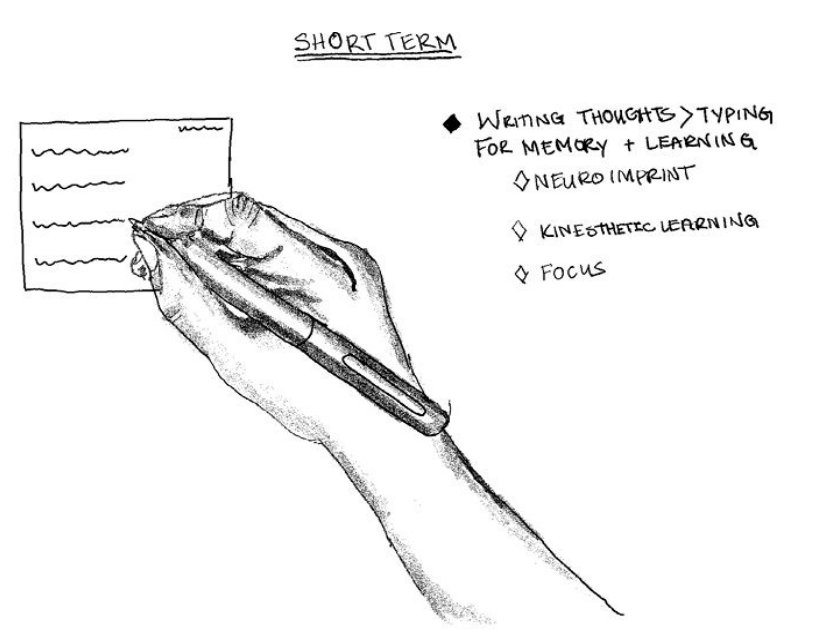 SHORT TERM
WRITING THOUGHTS > TYPING
FOR MEMORY + LEARNING
NEURO IMPRINT
KINESTHETIC LEARNING
FOCUS